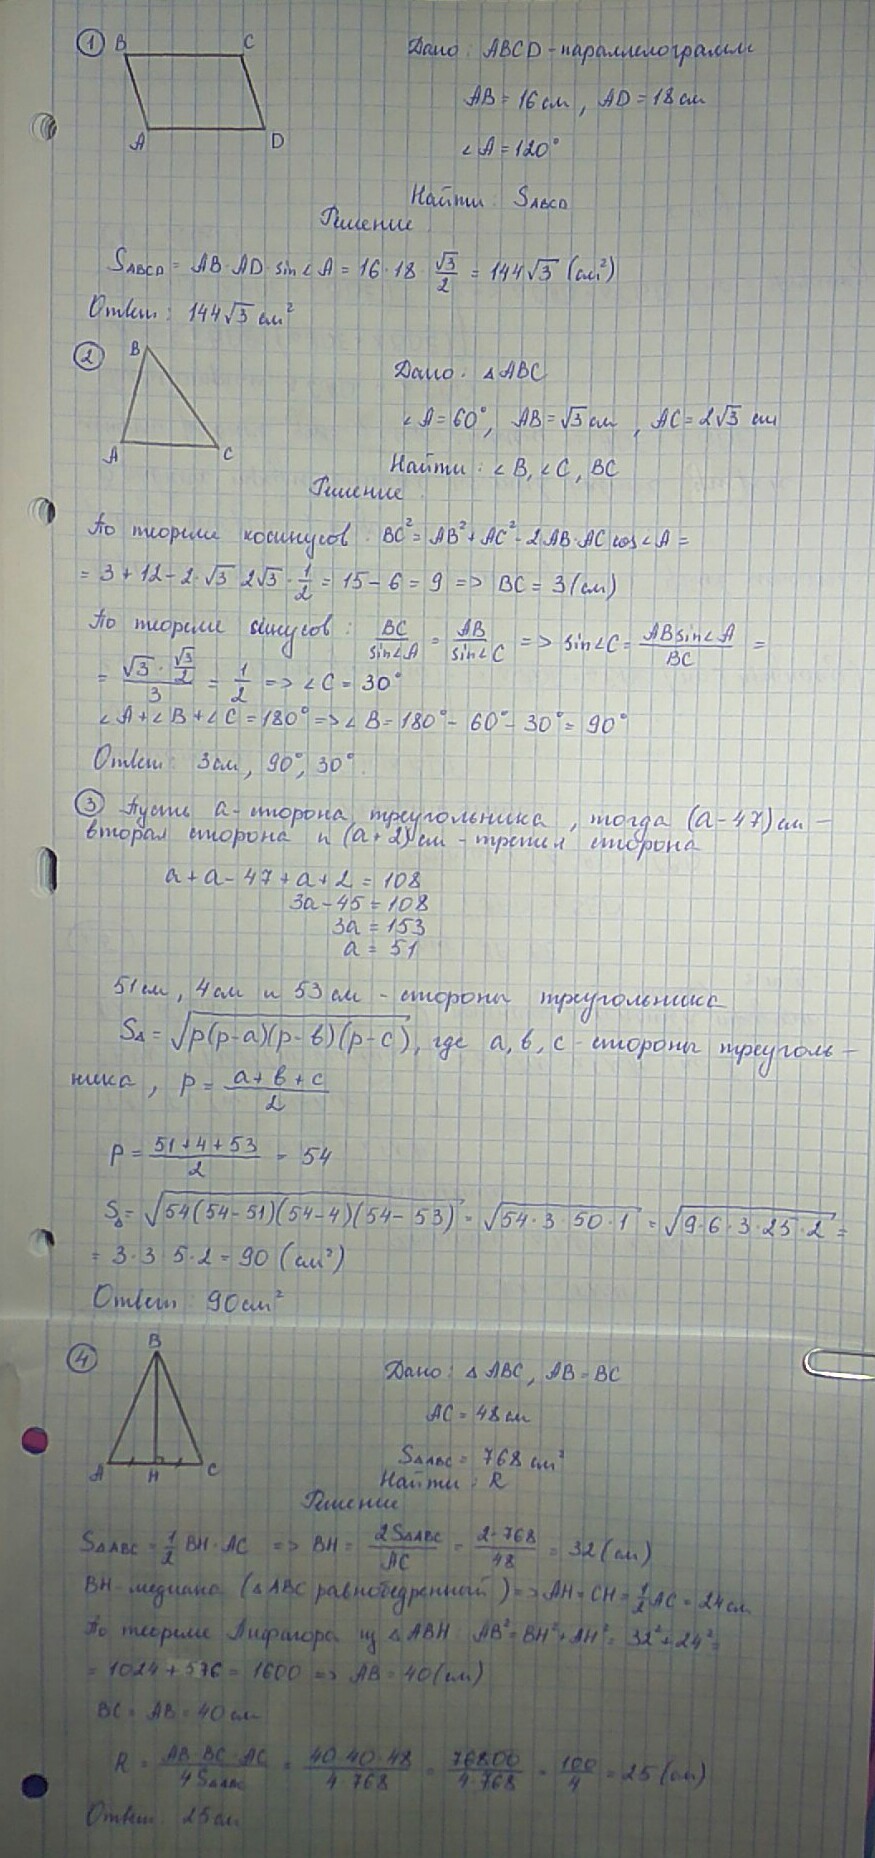 1 B C
A D
Дано: ABCD - параллелограмм
AB = 16 см, AD = 18 см
∠A = 120°
Найти: S_ABCD
Решение
S_ABCD = AB · AD · sin∠A = 16 · 18 · √3/2 = 144√3 (см²)
Ответ: 144√3 см²
2 B
A C
Дано: △ABC
∠A = 60°, AB = √3 см, AC = 2√3 см
Найти: ∠B, ∠C, BC
Решение
По теореме косинусов: BC² = AB² + AC² - 2AB·AC cos∠A =
= 3 + 12 - 2·√3·2√3·1/2 = 15 - 6 = 9 => BC = 3 (см)
По теореме синусов: BC/sin∠A = AB/sin∠C => sin∠C = ABsin∠A/BC =
= (√3·√3/2)/3 = 1/2 => ∠C = 30°
∠A + ∠B + ∠C = 180° => ∠B = 180° - 60° - 30° = 90°
Ответ: 3 см, 90°, 30°.
3 Пусть a - сторона треугольника, тогда (a - 47) см -
вторая сторона и (a + 2) см - третья сторона
a + a - 47 + a + 2 = 108
3a - 45 = 108
3a = 153
a = 51
51 см, 4 см и 53 см - стороны треугольника
S△ = √(p(p-a)(p-b)(p-c)), где a, b, c - стороны треуголь-
ника, p = (a+b+c)/2
p = (51+4+53)/2 = 54
S△ = √(54(54-51)(54-4)(54-53)) = √(54·3·50·1) = √(9·6·3·25·2) =
= 3·3·5·2 = 90 (см²)
Ответ: 90 см²
4 B
A H C
Дано: △ABC, AB = BC
AC = 48 см
S△ABC = 768 см²
Найти: R
Решение
S△ABC = 1/2 BH · AC => BH = 2S△ABC/AC = 2·768/48 = 32 (см)
BH - медиана (△ABC равнобедренный) => AH = CH = 1/2 AC = 24 см
По теореме Пифагора из △ABH: AB² = BH² + AH² = 32² + 24² =
= 1024 + 576 = 1600 => AB = 40 (см)
BC = AB = 40 см
R = AB·BC·AC/4S△ABC = 40·40·48/4·768 = 76800/4·768 = 100/4 = 25 (см)
Ответ: 25 см